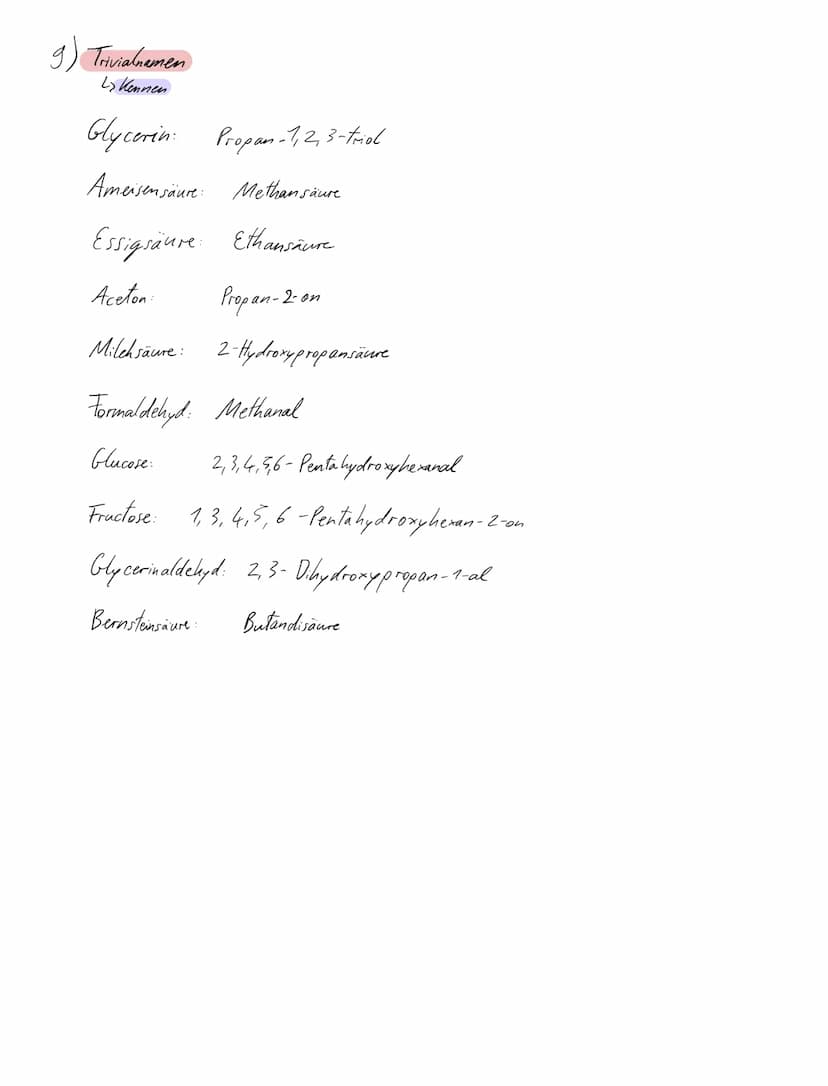 g) Trivialnamen
↳ Kennen
Glycerin: Propan-1,2,3-triol
Ameisensäure: Methansäure
Essigsäure: Ethansäure
Aceton: Propan-2-on
Milchsäure: 2-Hydroxypropansäure
Formaldehyd: Methanal
Glucose: 2,3,4,5,6-Pentahydroxyhexanal
Fructose: 1,3,4,5,6-Pentahydroxyhexan-2-on
Glycerinaldehyd: 2,3-Dihydroxypropan-1-al
Bernsteinsäure: Butandisäure